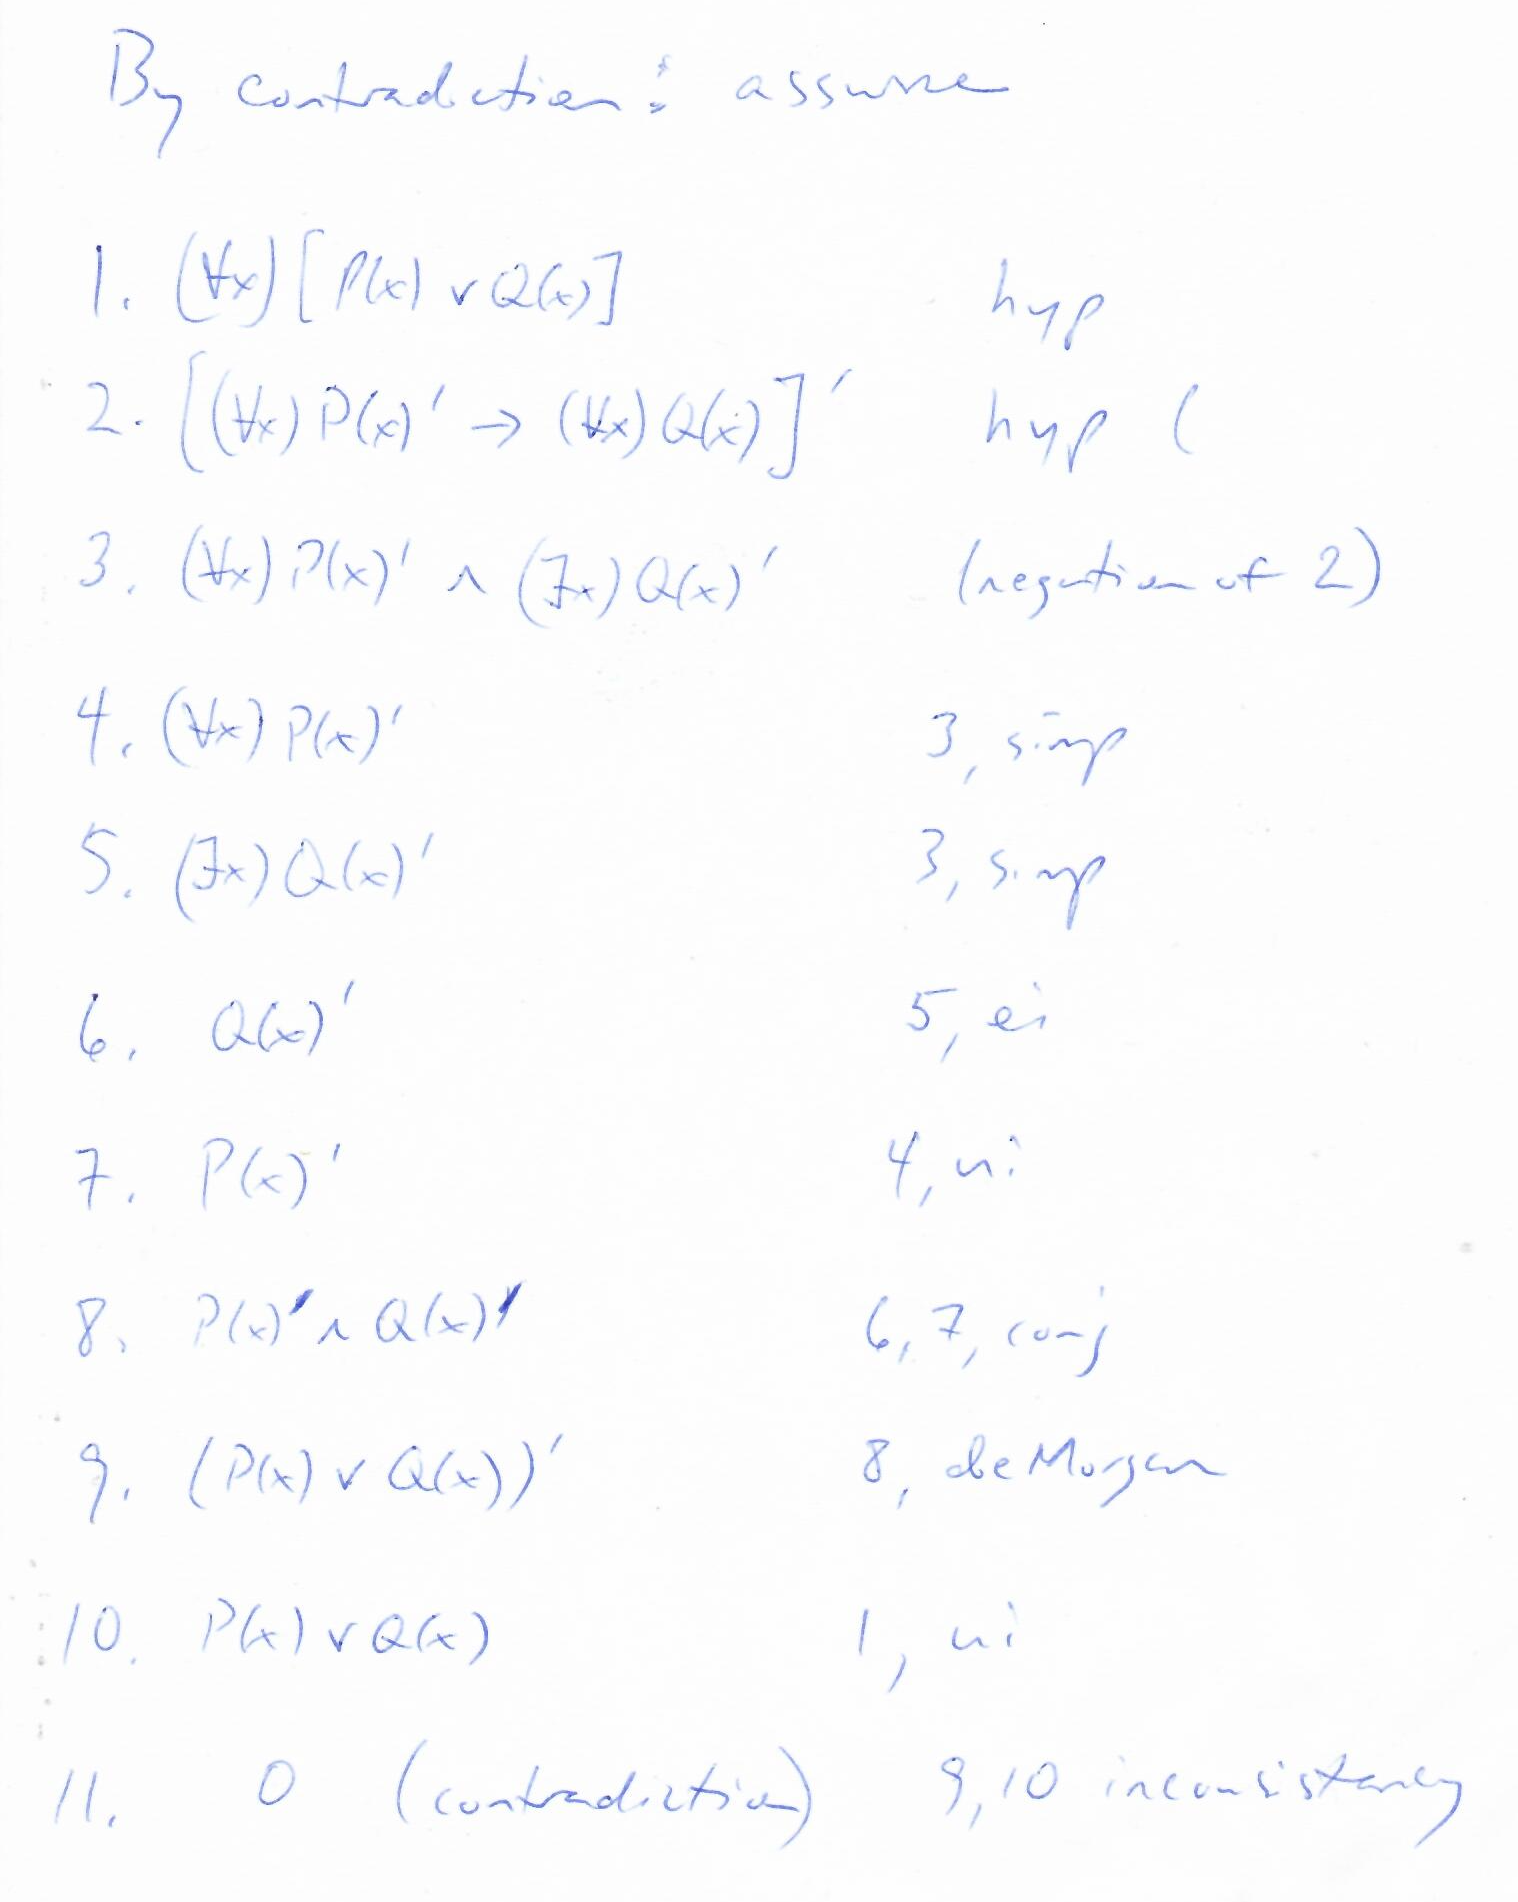 By contradiction: assume
1. (∀x)[P(x) ∨ Q(x)] hyp
2. [(∀x)P(x)' → (∀x)Q(x)]' hyp (
3. (∀x)P(x)' ∧ (∃x)Q(x)' (negation of 2)
4. (∀x)P(x)' 3, simp
5. (∃x)Q(x)' 3, simp
6. Q(x)' 5, ei
7. P(x)' 4, ui
8. P(x)' ∧ Q(x)' 6, 7, conj
9. (P(x) ∨ Q(x))' 8, deMorgan
10. P(x) ∨ Q(x) 1, ui
11. 0 (contradiction) 9,10 inconsistancy